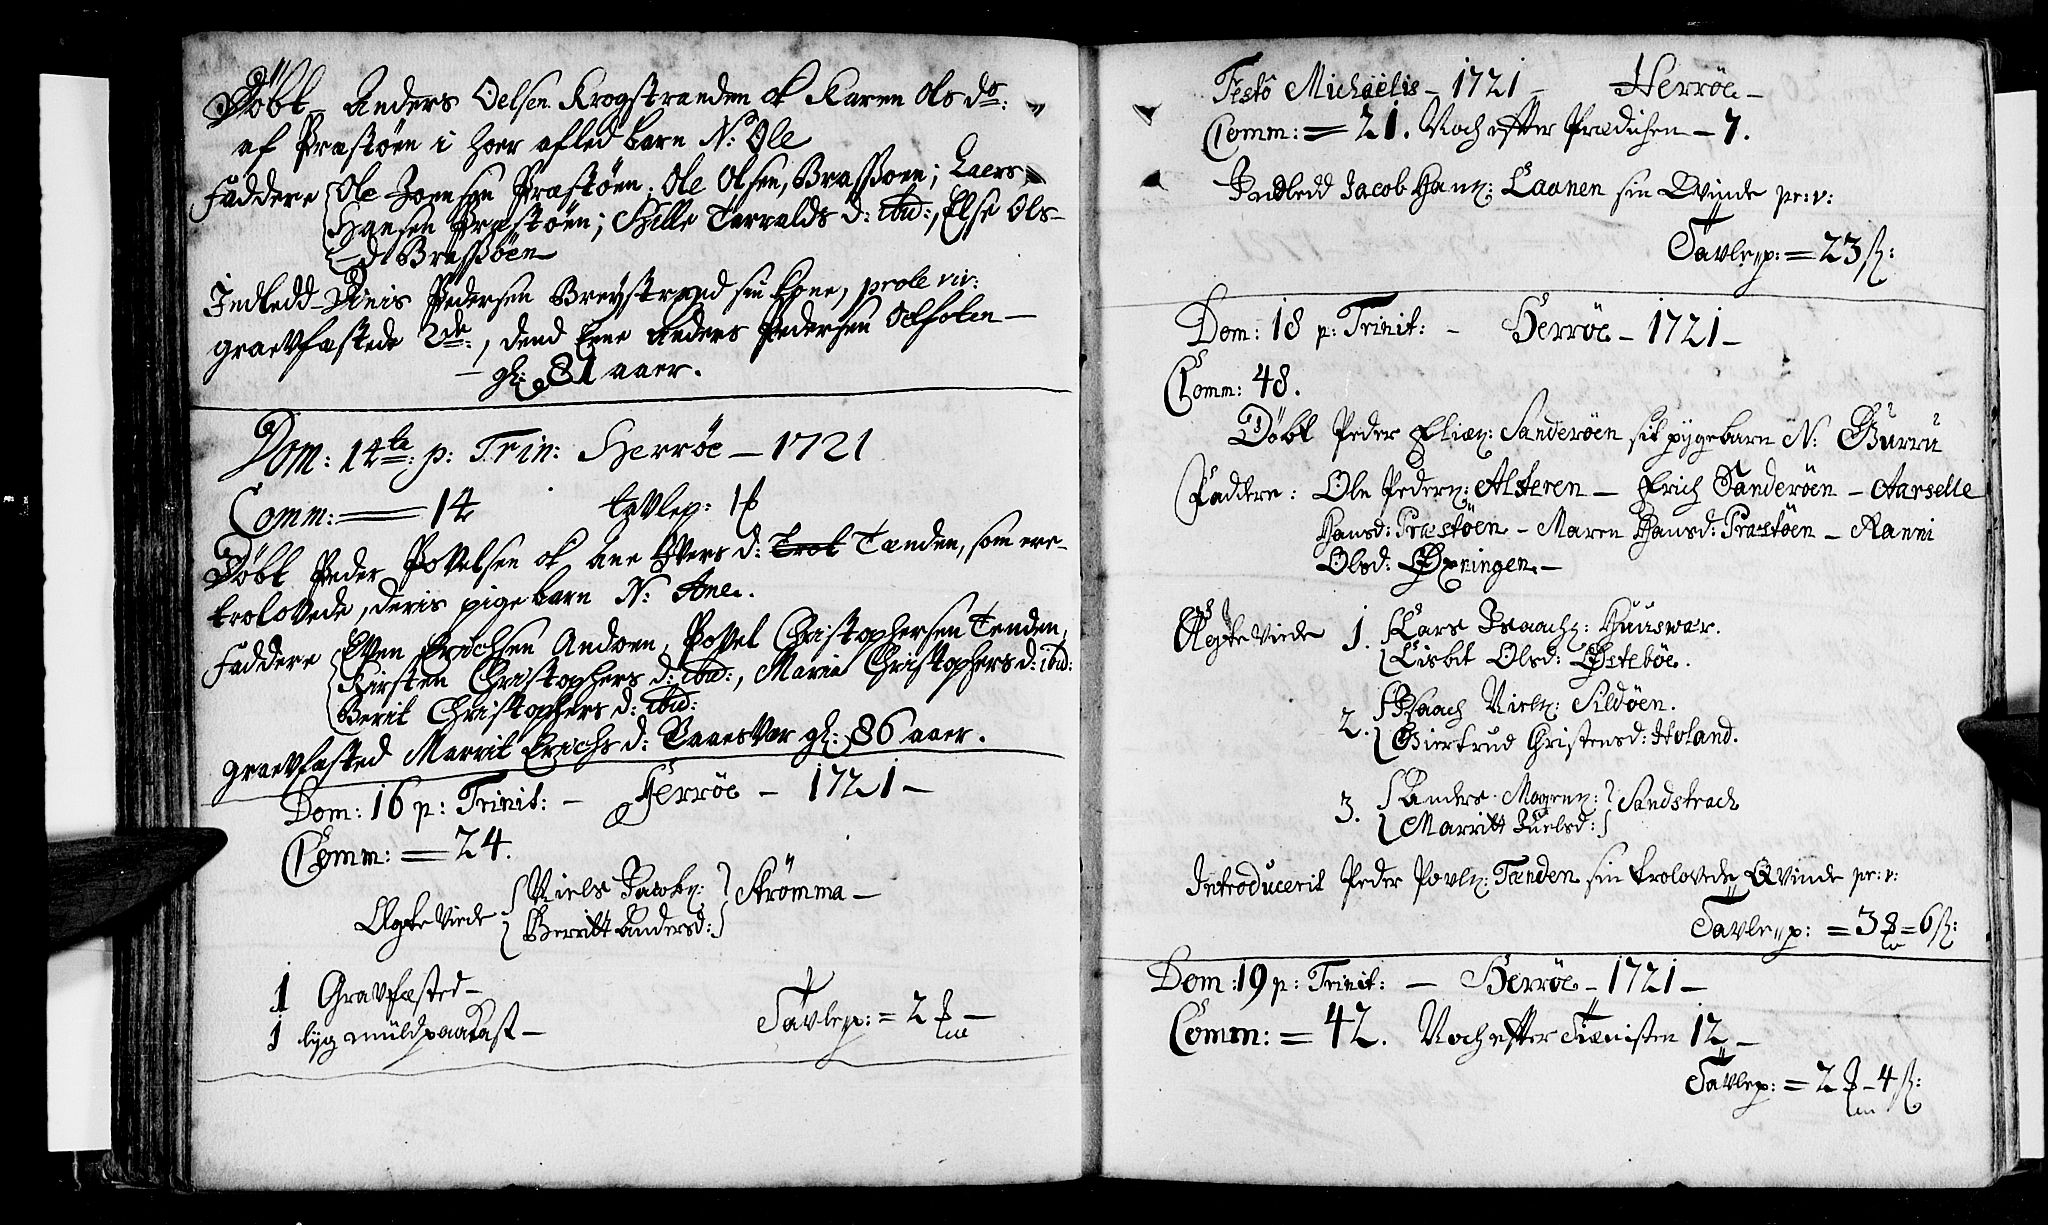 Döbt Anders Oelsen Krogstranden ok Karen Ols ds:
af Præstöen i hoer afled barn N: Ole
Faddere Ole Joensen Præstöen, Ole Olsen, Brasöen; Laers
Hansen Præstöen; Sille Tarralds d: ibid:, Else Ols
d: Brasöen
Indledd Pedersen Breistrand sin Kone, prole viv:
graevfæstede 2de, dend Eene Anders Pedersen Oelholen
gl: 81 aaer.
Dom: 14te p: Trin: Herröe – 1721
Comm: = 14 tavlep: 1
Döbt Peder Povelsen ok Ane d: Tænden, som ere
trolovede, deris pigebarn N: Ane.
Faddere Even Erichsen Andoen, Povel Christophersen Tenden,
Kirsten Christophers d: ibid:, Maria Christophers d: ibid:
Berit Christophers d: ibid:
graevfæsted Marrit Erichs d: Taaesvær gl: 86 aaer.
Dom: 16 p: Trinit: – Herröe – 1721 –
Comm: = 24.
Ægte Viede Niels Jacobs: Strömma –
Berritt Andersd:
1 Gravfæsted –
1 lyg muldpaakast – Tavlep: = 2
Festo Michaëlis – 1721 – Herröe –
Comm: = 21. Noch efter Prædichen – 7.
Indledd Jacob Hans: Laanen sin Qvinde pr: v:
Tavlep: = 23 s:
Dom: 18 p: Trinit: – Herröe – 1721 –
Comm: 48.
Döbt Peder Elies: Sanderöen sit pygebarn N: Gurru
Faddere: Ole Peders: Alsteren – Erich Sanderöen – Aarselle
Hansd: Præstöen – Maren Hansd: Præstöen – Ranni
Olsd: Öxningen. –
Ægte Viede 1. Lars Isaachs: Huusvær.
Lisbit Olsd: Östeböe.
2. Isaach Niels: Sildöen.
Giertrud Christensd: Holand.
3. Anders Mogens: Sandstrach
Marritt Juelsd:
Introducerit Peder Povls: Tænden sin trolovede Qvinde pr: v:
Tavlep: = 3 = 6 s:
Dom: 19 p: Trinit: – Herröe – 1721 –
Comm: = 42. Noch efter Tienisten 12 –
Tavlep: = 2 – 4 s: